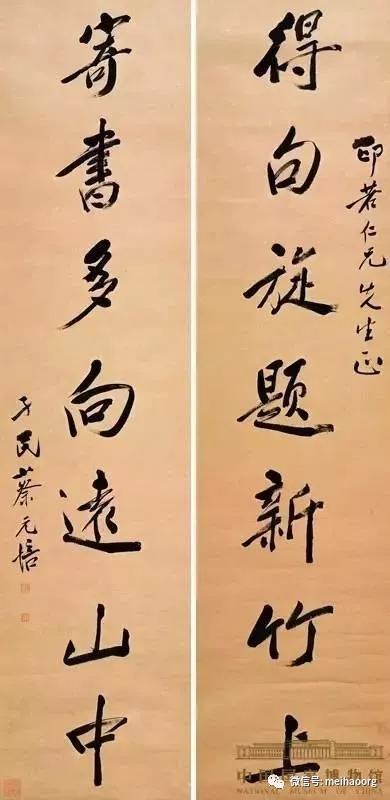 得句旋题新竹上
印若仁兄先生正
寄書多向遠山中
孑民蔡元培
中国国家博物馆
NATIONAL MUSEUM OF CHINA
微信号: meihaoorg